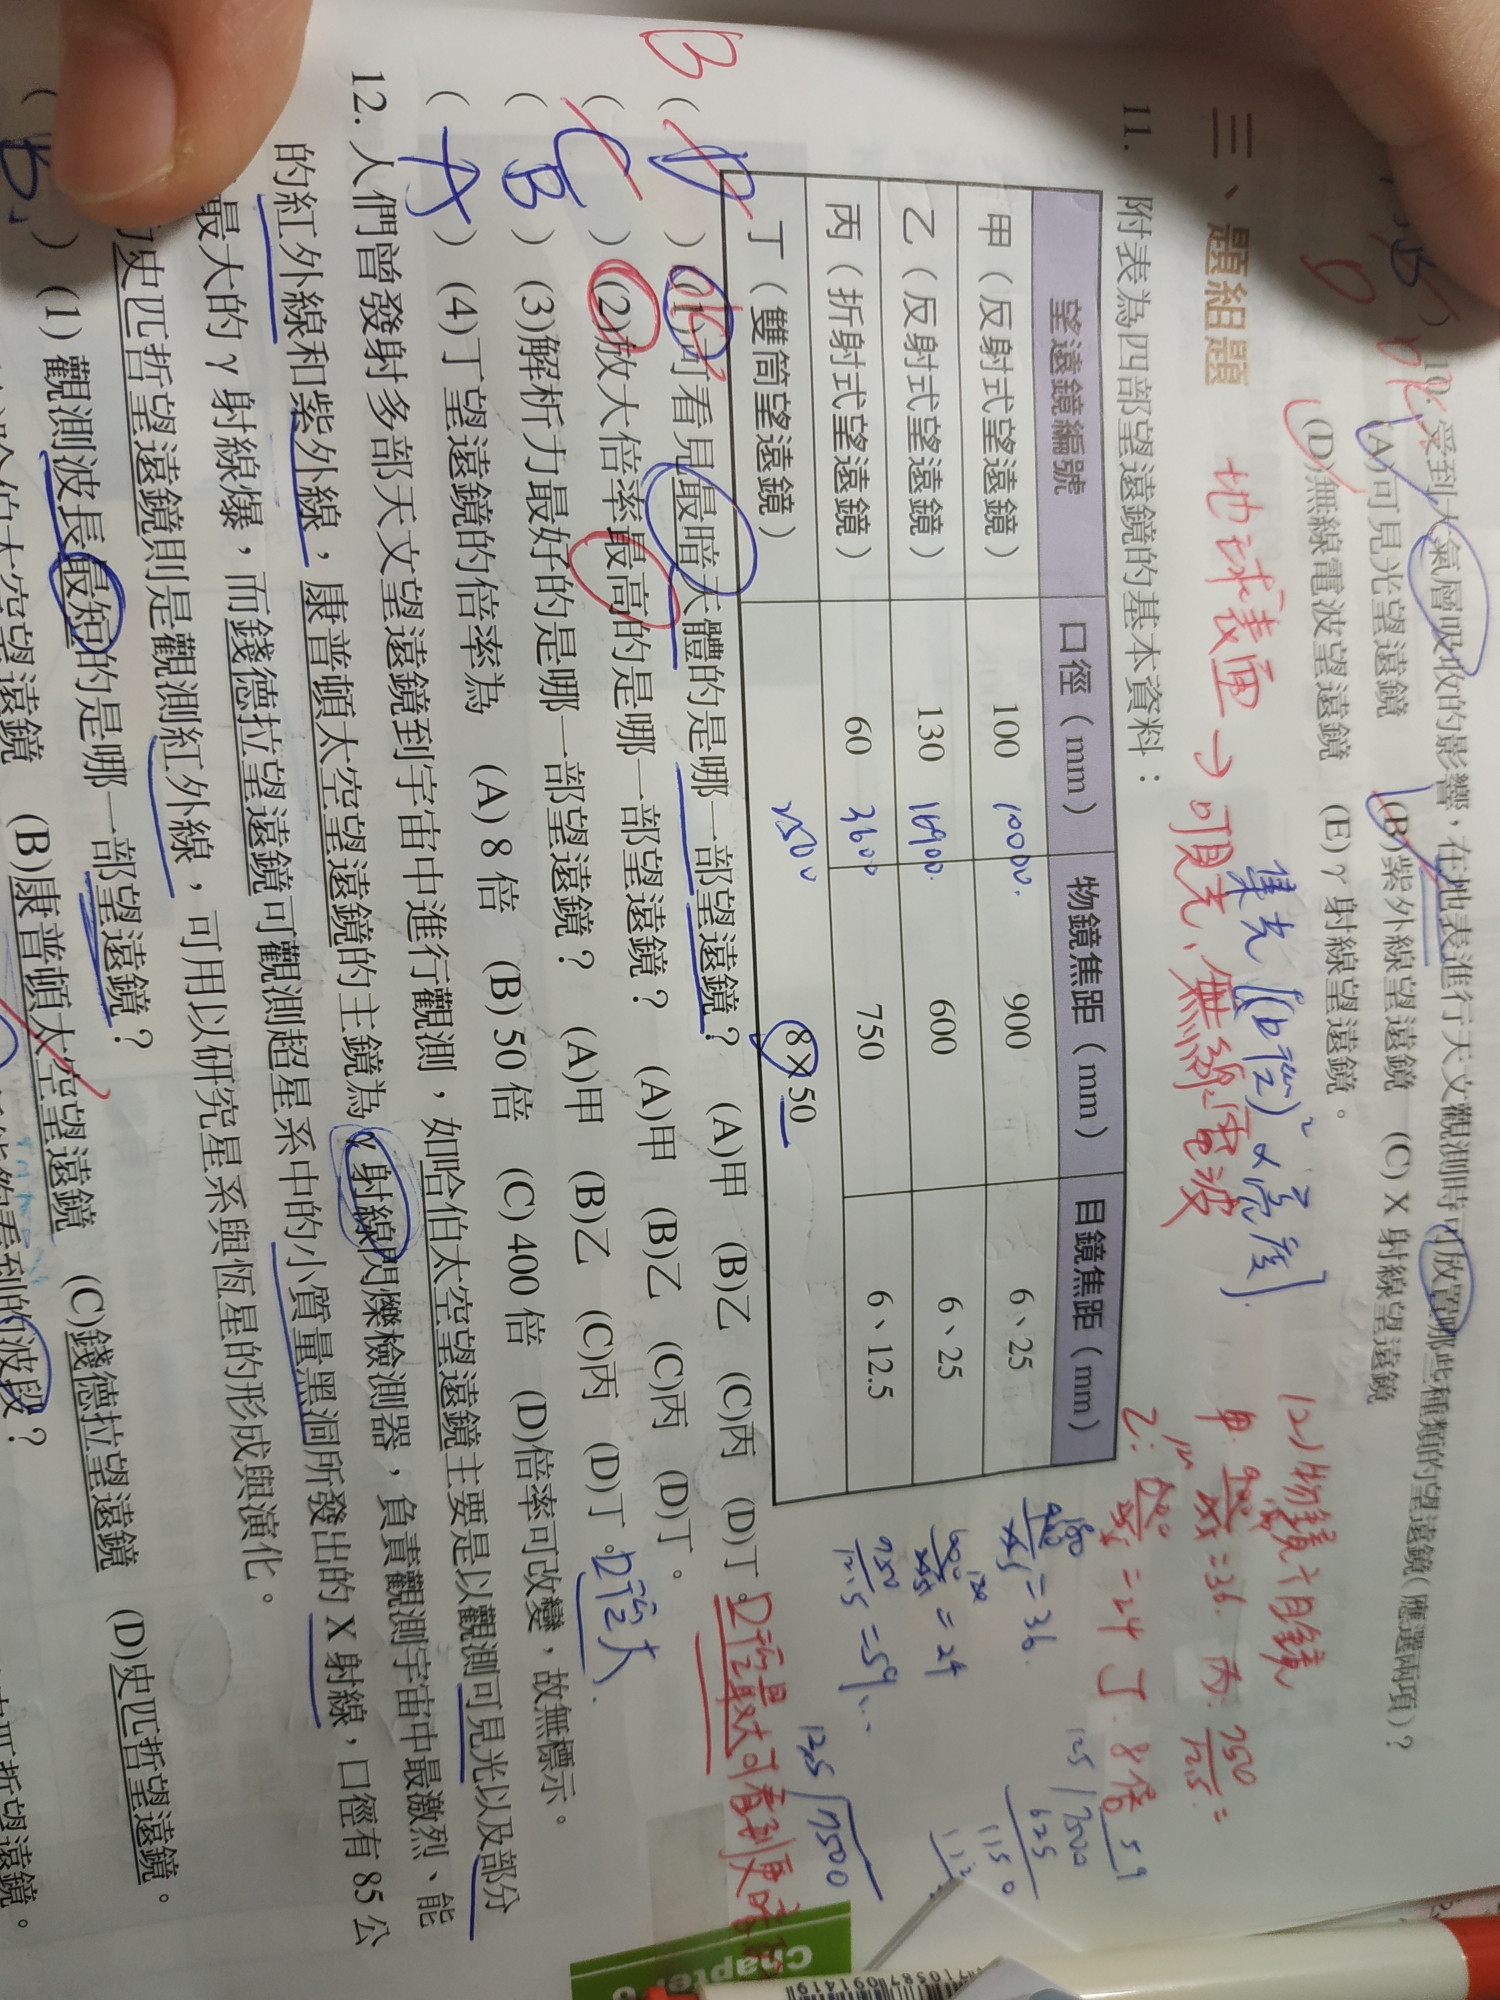 10.受到大氣層吸收的影響，在地表進行天文觀測時可放置哪些種類的望遠鏡(應選兩項)？
(A)可見光望遠鏡 (B)紫外線望遠鏡 (C) X 射線望遠鏡
(D)無線電波望遠鏡 (E) γ 射線望遠鏡。
三、題組題
地球表面→可見光、無線電波
集光[(口徑)² α 亮度]
(2)物鏡÷目鏡
11. 附表為四部望遠鏡的基本資料：
望遠鏡編號 口徑（mm） 物鏡焦距（mm） 目鏡焦距（mm）
甲（反射式望遠鏡） 100 10000 900 6、25
乙（反射式望遠鏡） 130 16900 600 6、25
丙（折射式望遠鏡） 60 3600 750 6、12.5
丁（雙筒望遠鏡） 2500 8×50
= 36
= 24
丁：8倍
B
( D ) (1)可看見最暗天體的是哪一部望遠鏡？ (A)甲 (B)乙 (C)丙 (D)丁。
( C ) (2)放大倍率最高的是哪一部望遠鏡？ (A)甲 (B)乙 (C)丙 (D)丁。
( B ) (3)解析力最好的是哪一部望遠鏡？ (A)甲 (B)乙 (C)丙 (D)丁。口徑大
( A ) (4)丁望遠鏡的倍率為 (A) 8 倍 (B) 50 倍 (C) 400 倍 (D)倍率可改變，故無標示。
12. 人們曾發射多部天文望遠鏡到宇宙中進行觀測，如哈伯太空望遠鏡主要是以觀測可見光以及部分
的紅外線和紫外線，康普頓太空望遠鏡的主鏡為 γ 射線閃爍檢測器，負責觀測宇宙中最激烈、能
最大的 γ 射線爆，而錢德拉望遠鏡可觀測超星系中的小質量黑洞所發出的 X 射線，口徑有 85 公
史匹哲望遠鏡則是觀測紅外線，可用以研究星系與恆星的形成與演化。
( B ) (1) 觀測波長最短的是哪一部望遠鏡？
(B)康普頓太空望遠鏡 (C)錢德拉望遠鏡 (D)史匹哲望遠鏡。
看到的波段？
Chapter